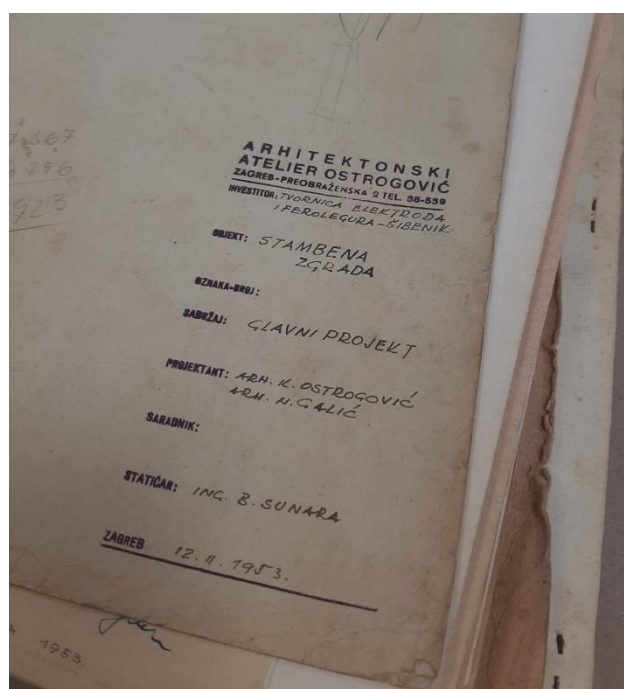 ARHITEKTONSKI
ATELIER OSTROGOVIĆ
ZAGREB-PREOBRAŽENSKA 2 TEL. 38-539
INVESTITOR: TVORNICA ELEKTRODA
I FEROLEGURA-ŠIBENIK
OBJEKT: STAMBENA
ZGRADA
OZNAKA-BROJ:
SADRŽAJ: GLAVNI PROJEKT
PROJEKTANT: ARH. K. OSTROGOVIĆ
ARH. N. GALIĆ
SARADNIK:
STATIČAR: ING. B. SUNARA
ZAGREB 12. II. 1953.
923
1953